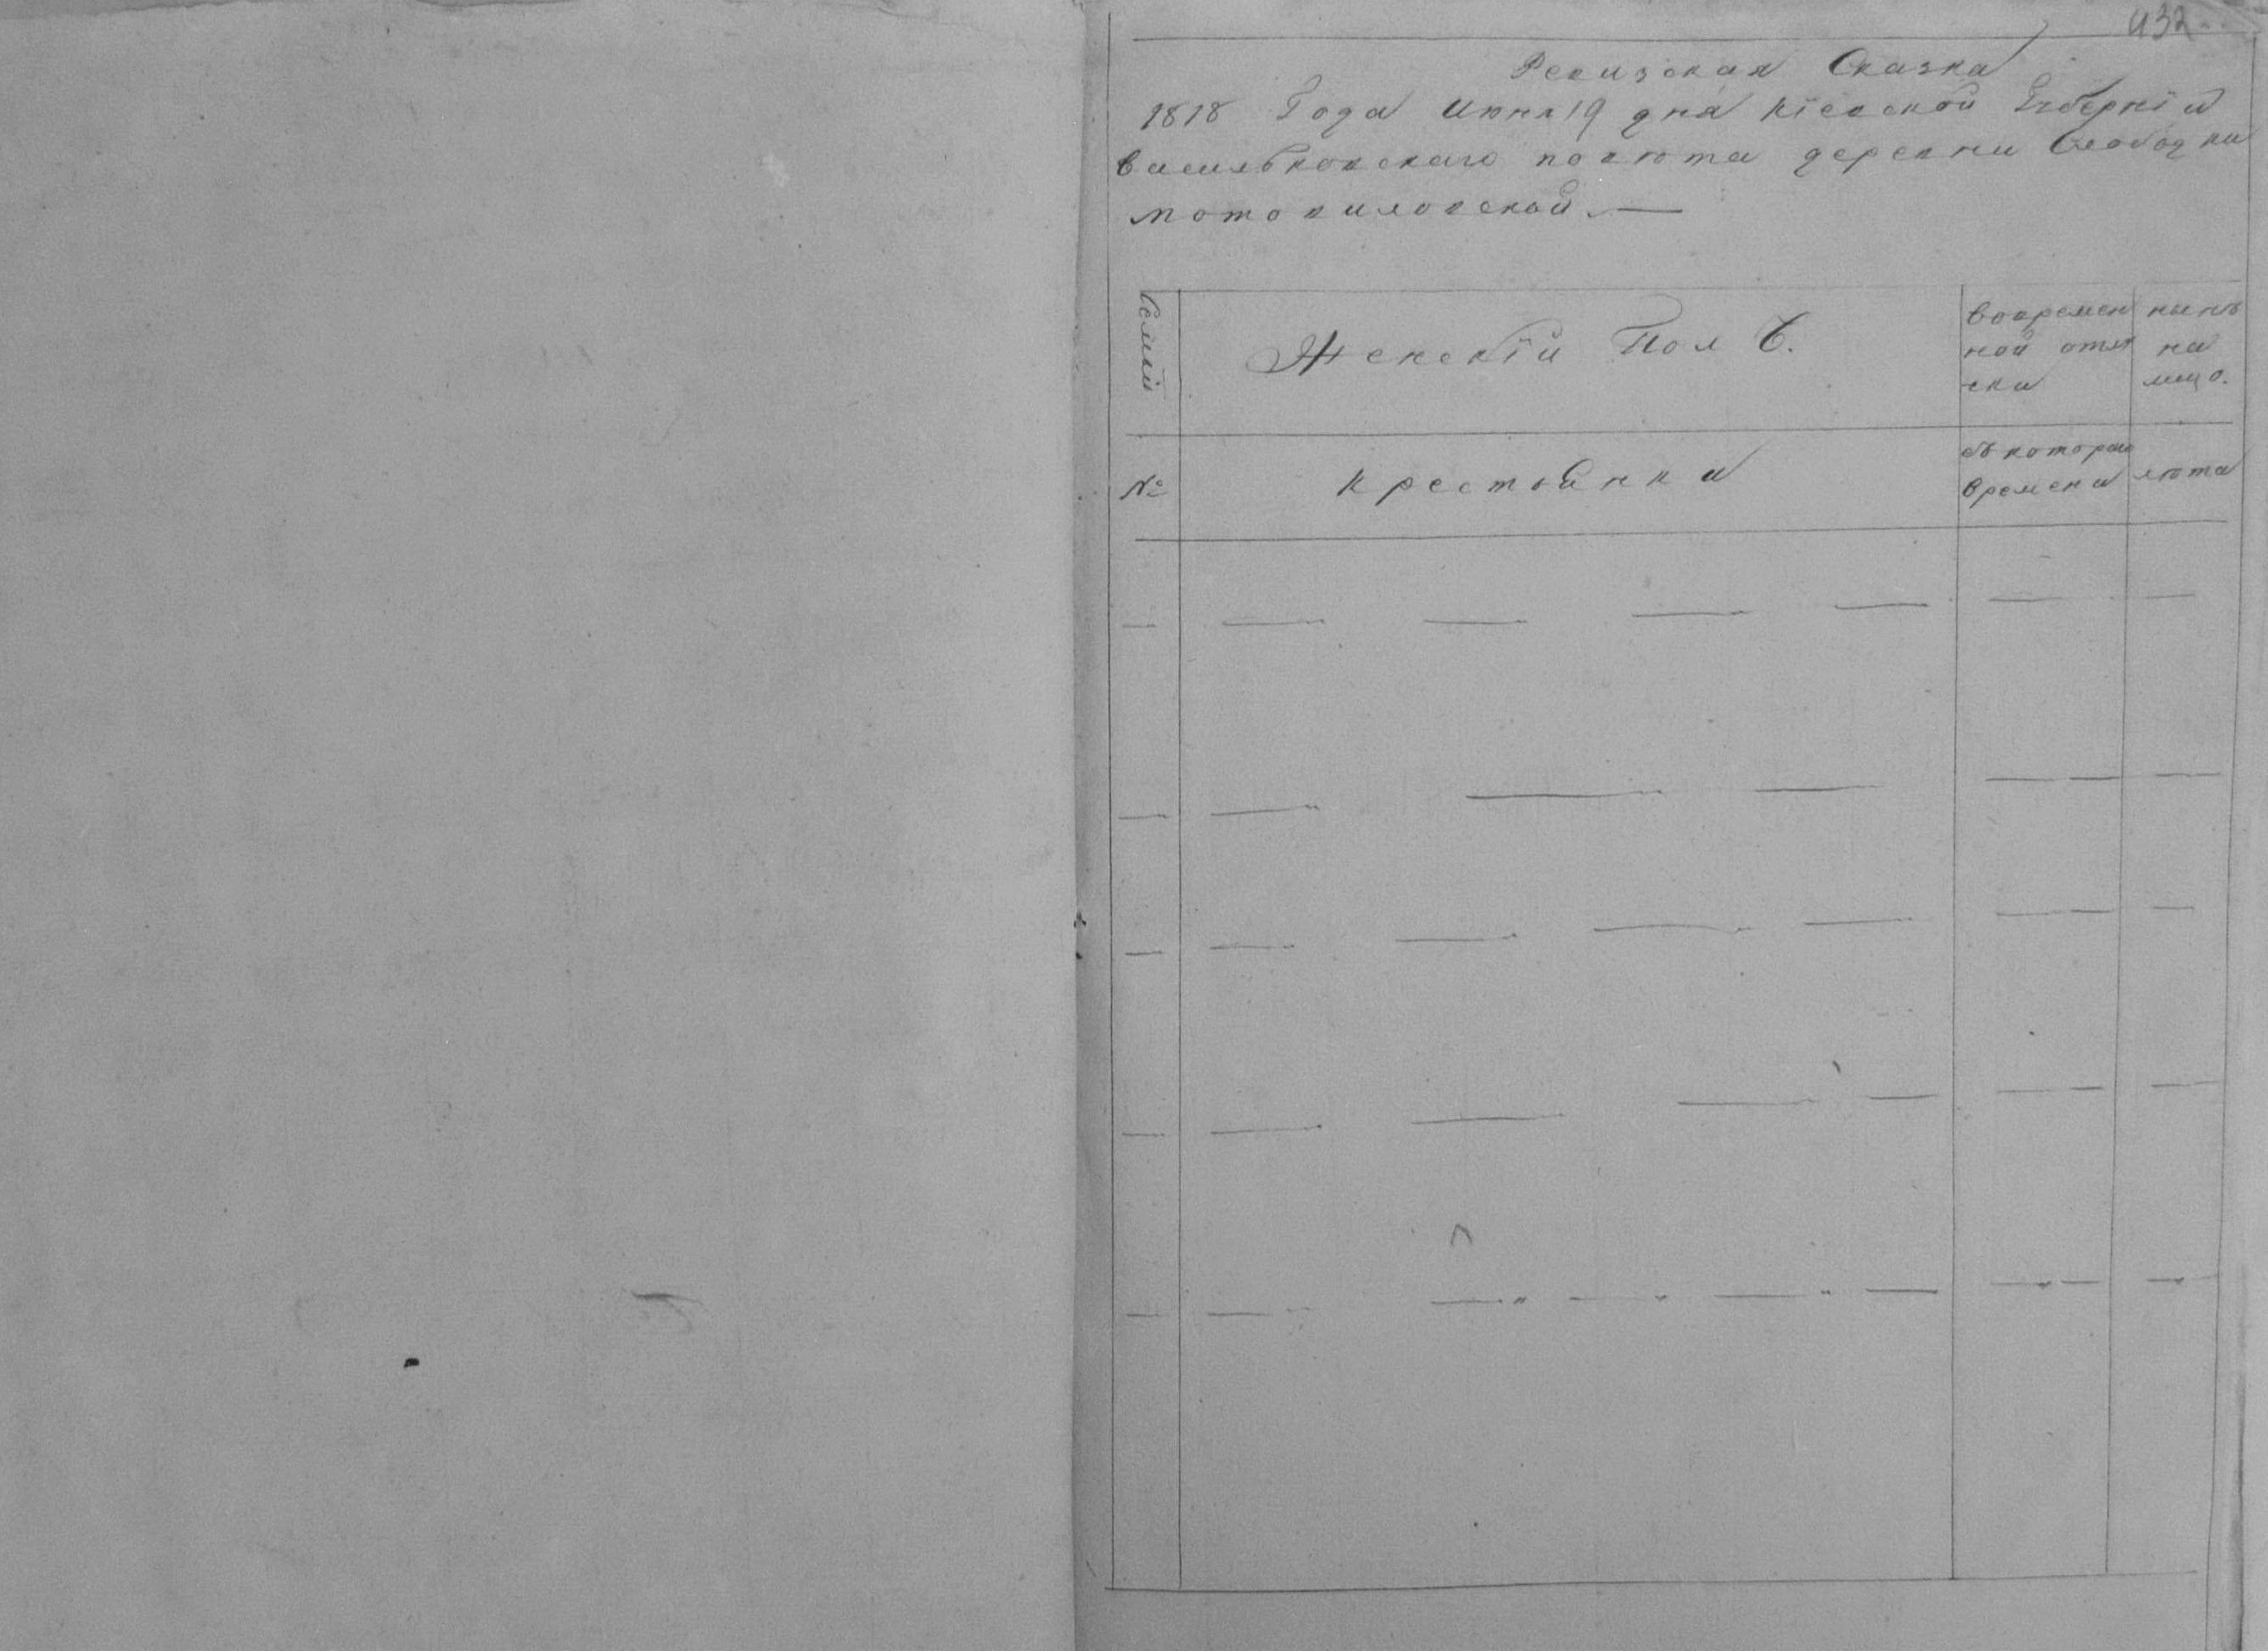 432
Ревизская Сказка
1818 Года Июня 19 дня Кіевской Губерніи
Васильковскаго повѣта деревни Слободки
Мотовиловской. —
Семьи
Женскій Полъ.
во времен
ной отлу
ски
нынѣ
на
лицо.
№
Крестьянки
съ котораго
времени
лѣта